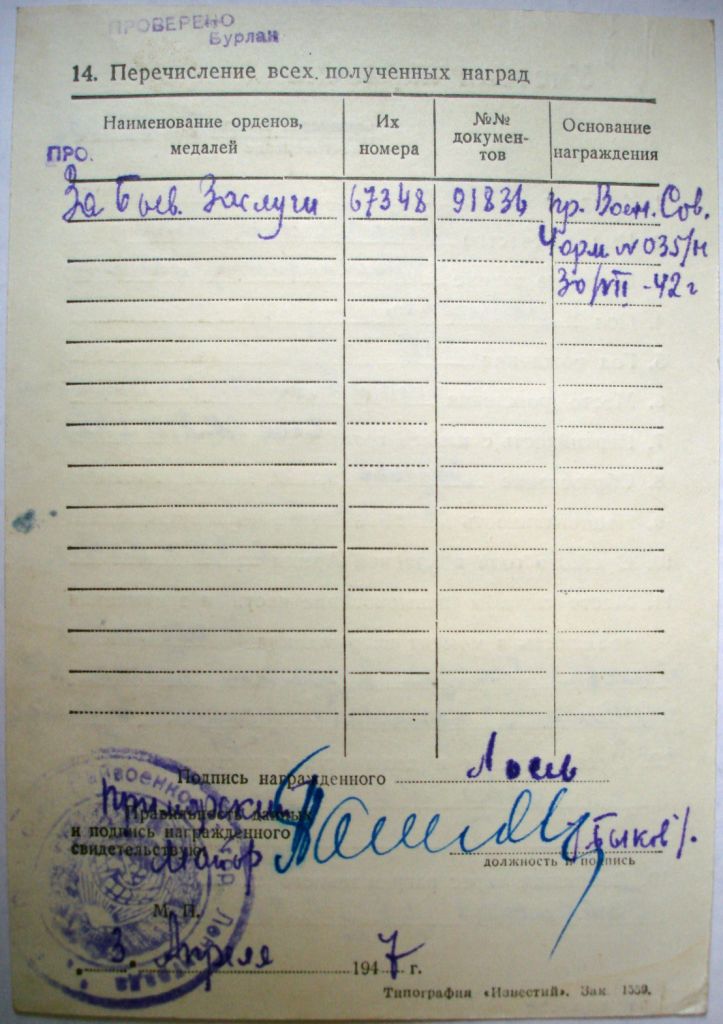 ПРОВЕРЕНО
Бурлан
14. Перечисление всех полученных наград
Наименование орденов, медалей
Их номера
№№ документов
Основание награждения
ПРО.
За Боев. Заслуги 67348 91836 пр. Воен. Сов.
Чорм № 035/н
30/VII -42 г
Подпись награжденного Лоев
Правильность данных
и подпись награжденного
свидетельствую
Майор
/Быков/.
должность и подпись
М. П.
3. Апреля 1947 г.
Типография «Известий». Зак. 1559.